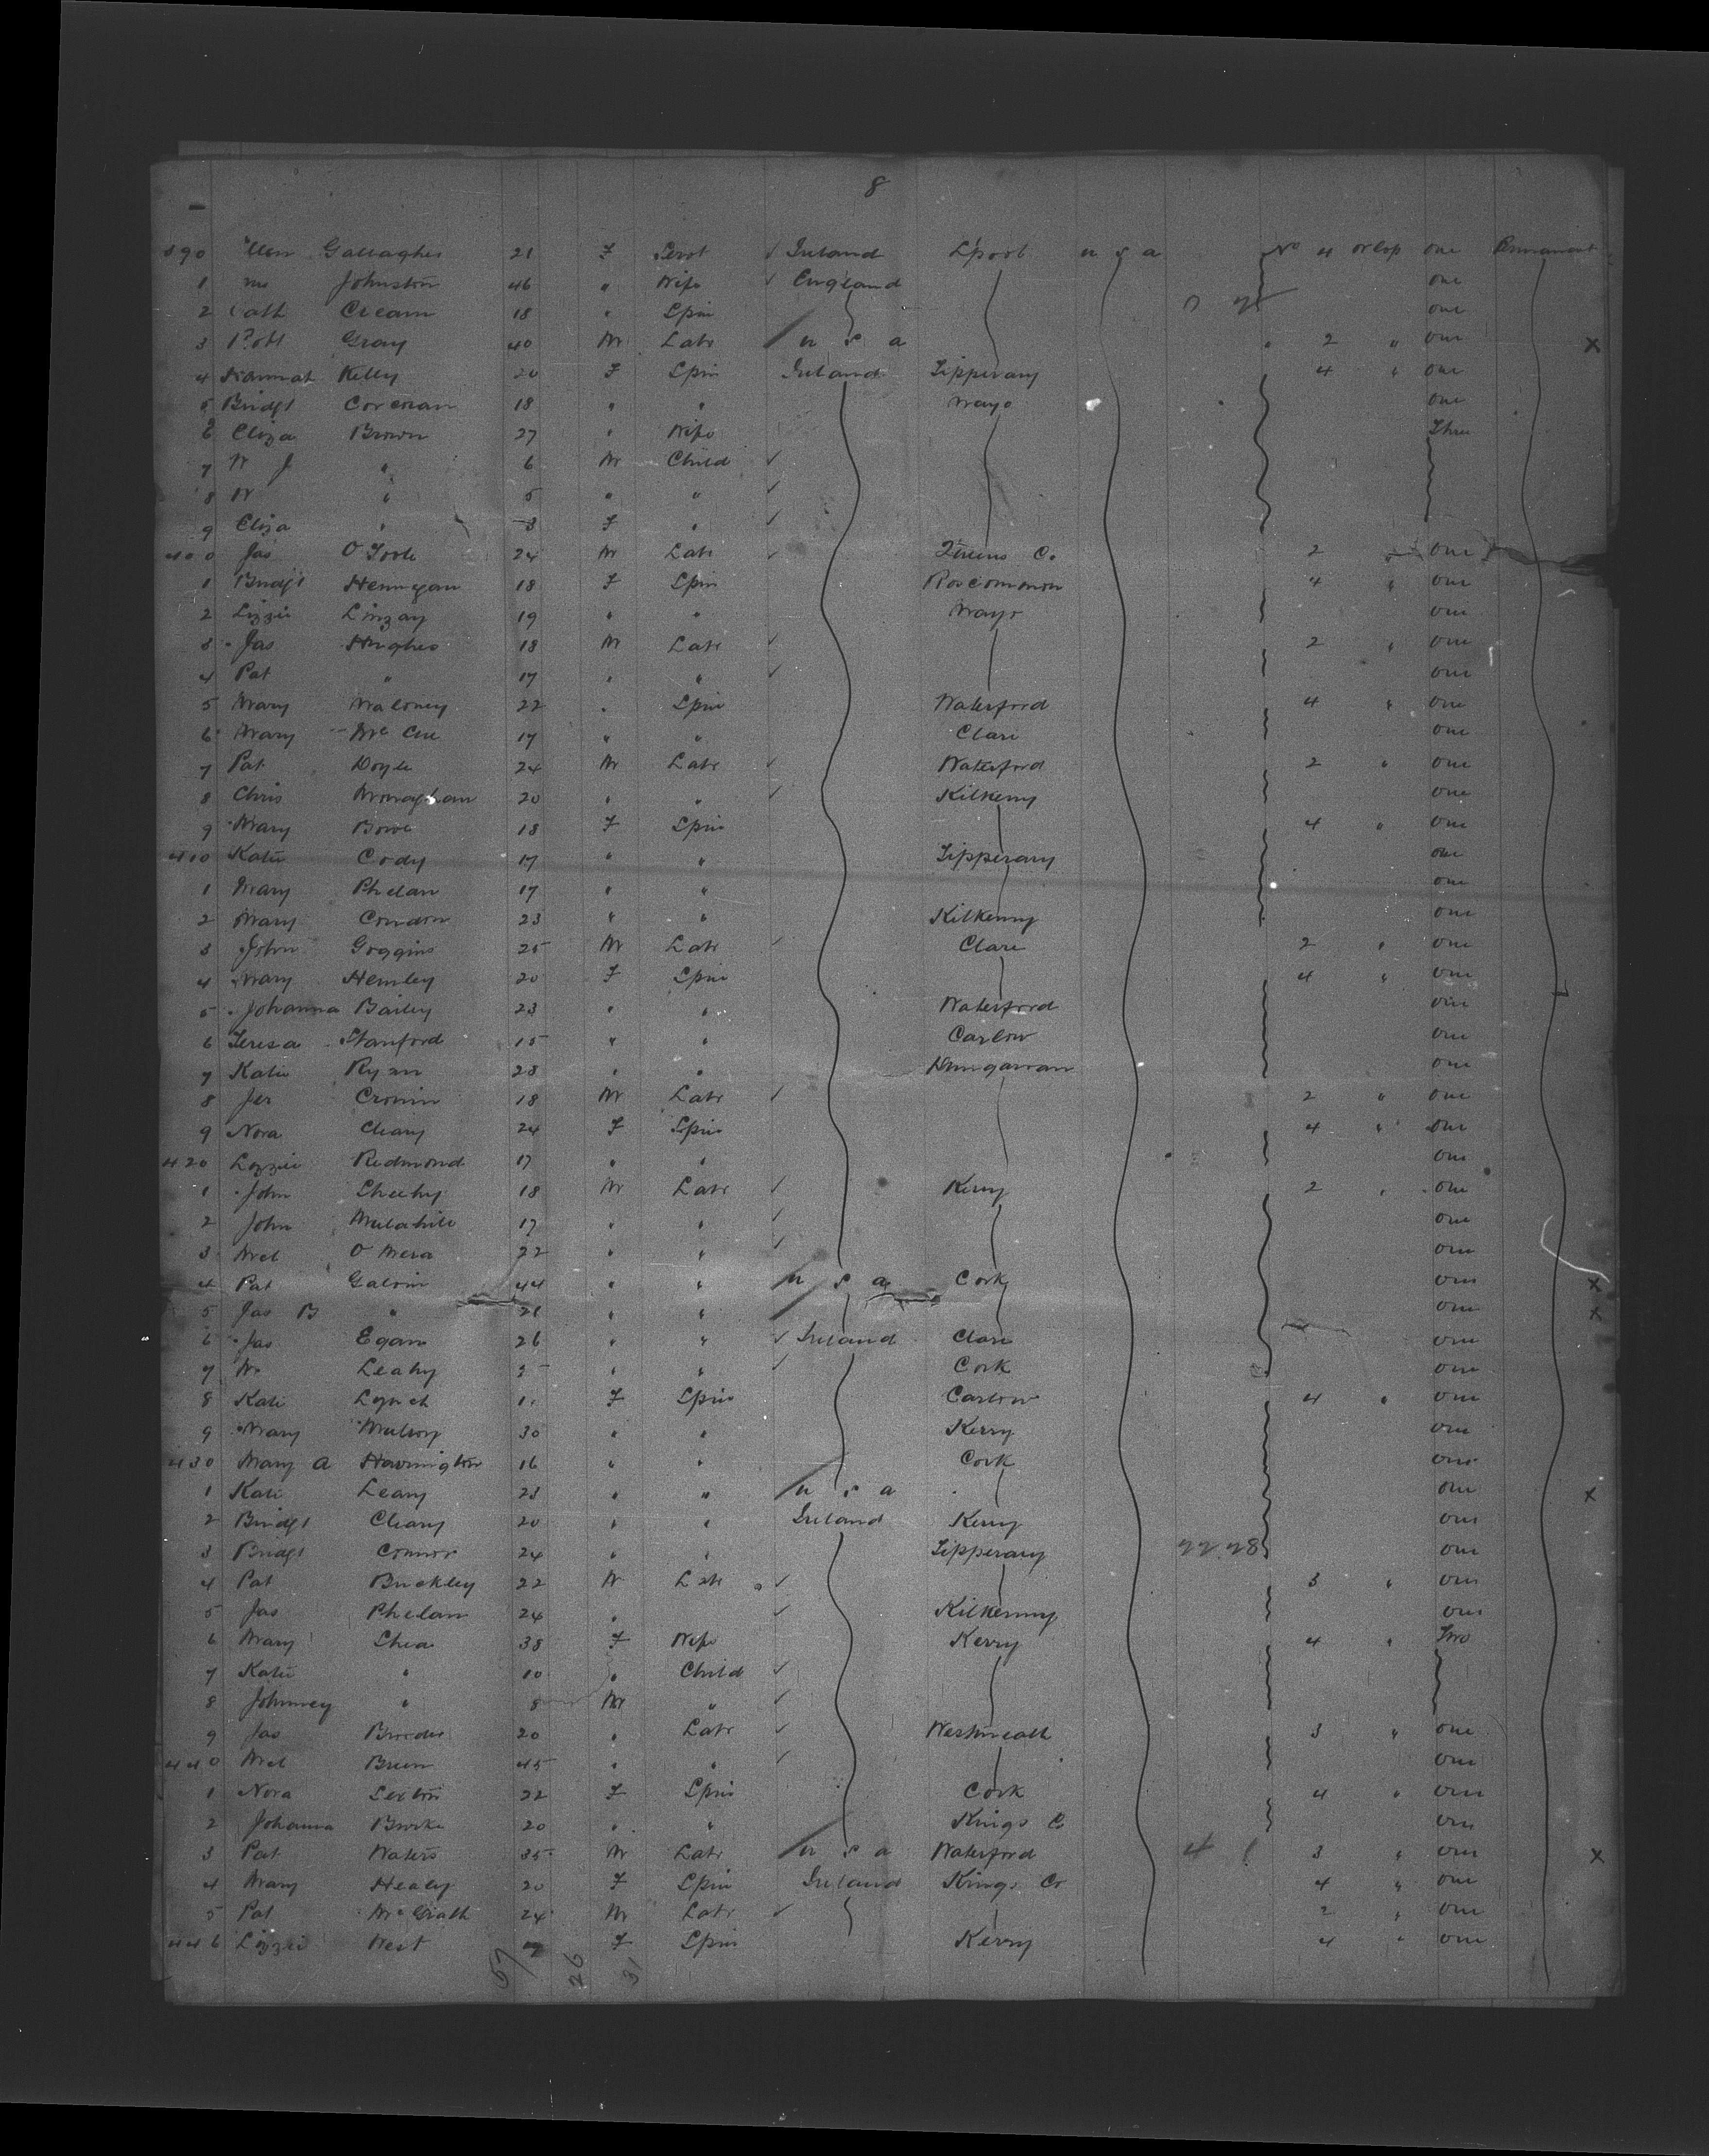 8
390 Ellen Gallagher 21 F Servt ✓ Ireland L'pool U S A No 4 orlop one Permanent
1 Johnston 46 " Wife ✓ England one
2 Cath Cream 18 " Spin one
3 Robt Gray 40 M Labr U S A " 2 " one X
4 Hannah Kelly 20 F Spin Ireland Tipperary 4 " one
5 Bridgt Corcoran 18 " " Mayo one
6 Eliza Brown 27 " Wife Three
7 W J " 6 M Child ✓
8 W " 5 " " ✓
9 Eliza " 3 F " ✓
400 Jas O Toole 24 M Labr ✓ Queens Co. 2 " one
1 Bridgt Hennigan 18 F Spin Roscommon 4 " one
2 Lizzie Linzay 19 " " Mayo one
3 Jas Hughes 18 M Labr ✓ 2 " one
4 Pat " 17 " " ✓ one
5 Mary Maloney 22 " Spin Waterford 4 " one
6 Mary Mc Cue 17 " " Clare one
7 Pat Doyle 24 M Labr ✓ Waterford 2 " one
8 Chris Monaghan 20 " " ✓ Kilkenny one
9 Mary Bowe 18 F Spin 4 " one
410 Katie Cody 17 " " Tipperary one
1 Mary Phelan 17 " " one
2 Mary Condon 23 " " Kilkenny one
3 John Goggins 25 M Labr ✓ Clare 2 " one
4 Mary Hemley 20 F Spin 4 " one
5 Johanna Bailey 23 " " Waterford one
6 Teresa Stanford 15 " " Carlow one
7 Katie Ryan 28 " " Dungarvan one
8 Jer Cronin 18 M Labr ✓ 2 " one
9 Nora Cleary 24 F Spin 4 " one
420 Lizzie Redmond 17 " " one
1 John Sheehy 18 M Labr ✓ Kerry 2 " one
2 John Mulahill 17 " " ✓ one
3 Mcl O Mera 22 " " ✓ one
4 Pat Galvin 44 " " U S A Cork one X
5 Jas B " 21 " " one X
6 Jas Egan 26 " " ✓ Ireland Clare one
7 Leahy " " ✓ Cork one
8 Kate Lynch F Spin Carlow 4 " one
9 Mary 30 " " Kerry one
430 Mary A Harrington 16 " " Cork one
1 Kate Leary 23 " " U S A one X
2 Bridgt Cleary 20 " " Ireland Kerry one
3 Bridgt Connor 24 " " Tipperary one
4 Pat Buckley 22 M Labr ✓ 3 " one
5 Jas Phelan 24 " ✓ Kilkenny one
6 Mary Shea 38 F Wife Kerry 4 " Two
7 Katie " 10 " Child ✓
8 Johnney " 8 M " ✓
9 Jas 20 " Labr ✓ Westmeath 3 " one
440 Mcl Breen 45 " " ✓ one
1 Nora Sexton 22 F Spin Cork 4 " one
2 Johanna Burke 20 " " Kings Co one
3 Pat Waters 35 M Labr U S A Waterford 3 " one X
4 Mary Healey 20 F Spin Ireland Kings Co 4 " one
5 Pat Mc Grath 24 M Labr ✓ 2 " one
446 Lizzie West F Spin Kerry 4 " one
57 26 31